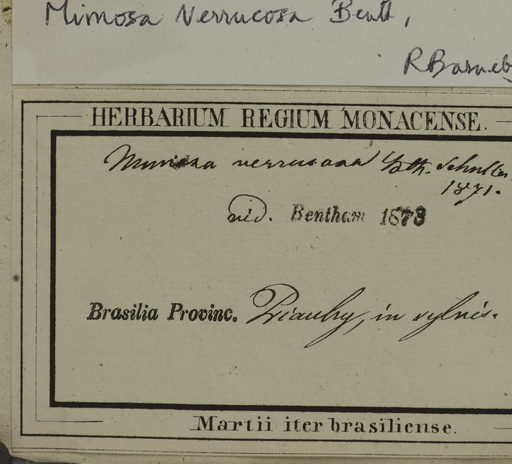 Mimosa verrucosa Benth,
R Barneby
HERBARIUM REGIUM MONACENSE.
Mimosa verrucosa Bth. Schultes
1871.
vid. Bentham 1873
Brasilia Provinc. Piauhy, in sylvis.
Martii iter brasiliense.